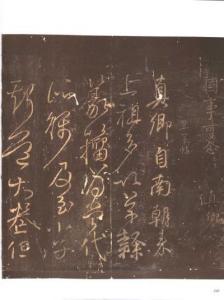 真卿
真卿自南朝来
上祖多以草隸
篆籀為當代
所稱及至小子
斯道大喪但